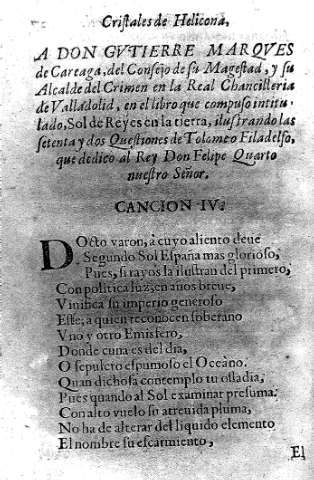 Cristales de Helicona,
A DON GVTIERRE MARQVES
de Careaga, del Consejo de su Magestad, y su
Alcalde del Crimen en la Real Chancilleria
de Valladolid, en el libro que compuso intitu-
lado, Sol de Reyes en la tierra, ilustrando las
setenta y dos Questiones de Tolomeo Filadelfo,
que dedicò al Rey Don Felipe Quarto
nuestro Señor.
CANCION IV.
DOcto varon, à cuyo aliento deue
Segundo Sol España mas glorioso,
Pues, si rayos la ilustran del primero,
Con politica luz, en años breue,
Viuifica su imperio generoso
Este, a quien reconocen soberano
Vno y otro Emisfero,
Donde cuna es del dia,
O sepulcro espumoso el Oceàno.
Quan dichosa contemplo tu osladia,
Pues quando al Sol examinar presuma
Con alto vuelo su atreuida pluma,
No ha de alterar del liquido elemento
El nombre su escarmiento,
El